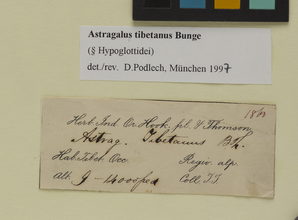 Astragalus tibetanus Bunge
(§ Hypoglottidei)
det./rev. D.Podlech, München 1997
Herb. Ind. Or. Hook. fil. & Thomson
Astrag. Tibetanus Bth.
Hab. Tibet. Occ. Regio alp.
Alt. 9-14000 ped Coll. T.T.